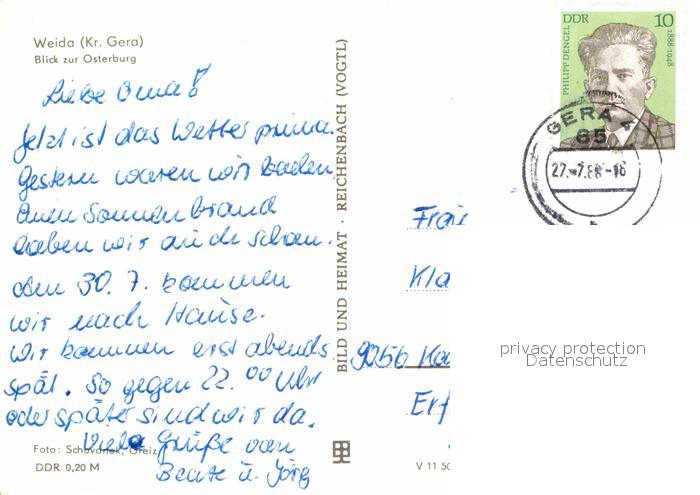 Weida (Kr. Gera)
Blick zur Osterburg
Liebe Oma!
Jetzt ist das Wetter prima.
Gestern waren wir baden.
Einen Sonnenbrand
haben wir auch schon.
Am 30. 7. kommen
wir nach Hause.
Wir kommen erst abends
spät. So gegen 22.00 Uhr
oder später sind wir da.
Viele Grüße von
Beate u. Jörg
Foto: Schovánek, Greiz
DDR 0,20 M
BILD UND HEIMAT · REICHENBACH (VOGTL)
V 11 50
DDR 10
PHILIPP DENGEL
1888-1948
GERA 4
65
27.-7.8 -16
Frau
Kla
9056
Erf
privacy protection
Datenschutz